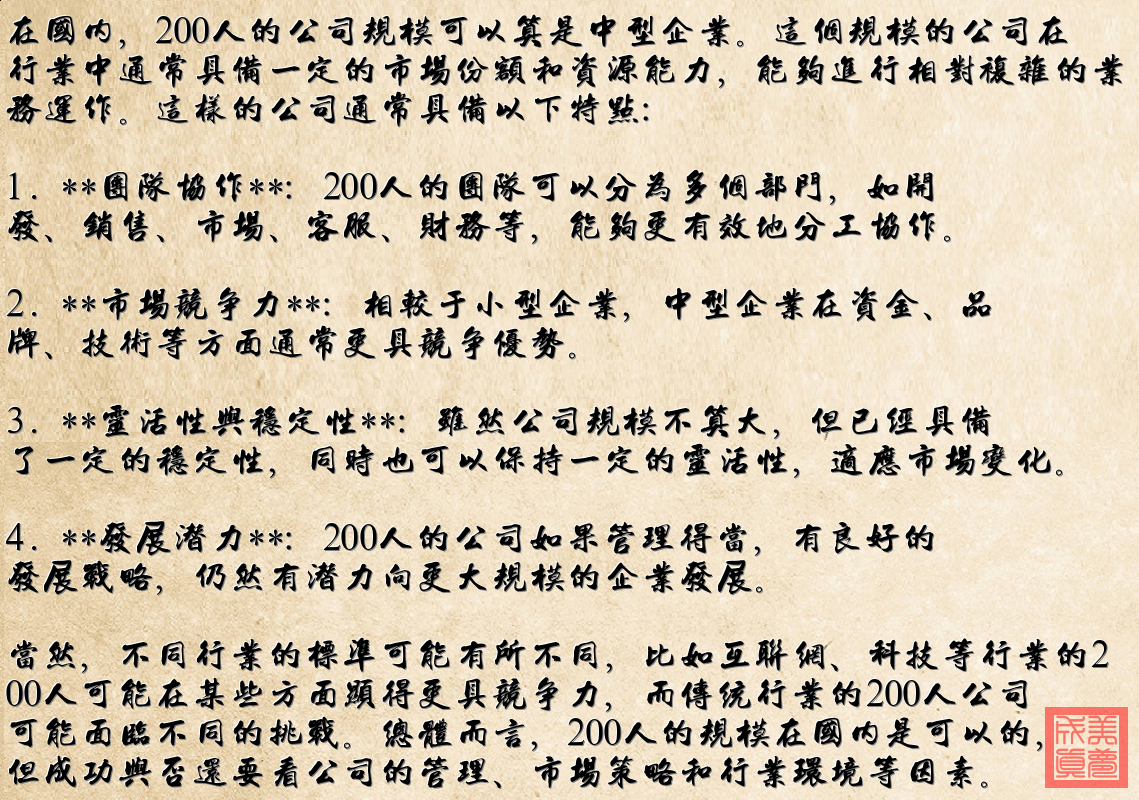 在國內，200人的公司規模可以算是中型企業。這個規模的公司在
行業中通常具備一定的市場份額和資源能力，能夠進行相對複雜的業
務運作。這樣的公司通常具備以下特點：
1. **團隊協作**：200人的團隊可以分為多個部門，如開
發、銷售、市場、客服、財務等，能夠更有效地分工協作。
2. **市場競爭力**：相較于小型企業，中型企業在資金、品
牌、技術等方面通常更具競爭優勢。
3. **靈活性與穩定性**：雖然公司規模不算大，但已經具備
了一定的穩定性，同時也可以保持一定的靈活性，適應市場變化。
4. **發展潛力**：200人的公司如果管理得當，有良好的
發展戰略，仍然有潛力向更大規模的企業發展。
當然，不同行業的標準可能有所不同，比如互聯網、科技等行業的2
00人可能在某些方面顯得更具競爭力，而傳統行業的200人公司
可能面臨不同的挑戰。總體而言，200人的規模在國內是可以的，
但成功與否還要看公司的管理、市場策略和行業環境等因素。
美夢
成真